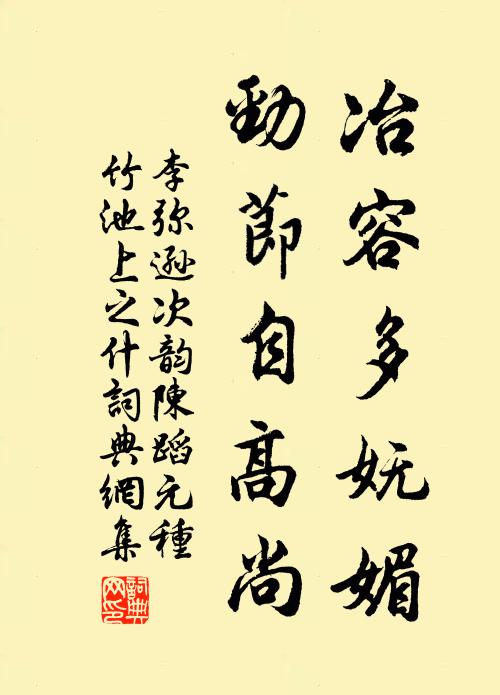 冶容多妩媚
劲節自高尚
李弥遜次韵陳蹈元種
竹池上之什詞典網集
詞典网印